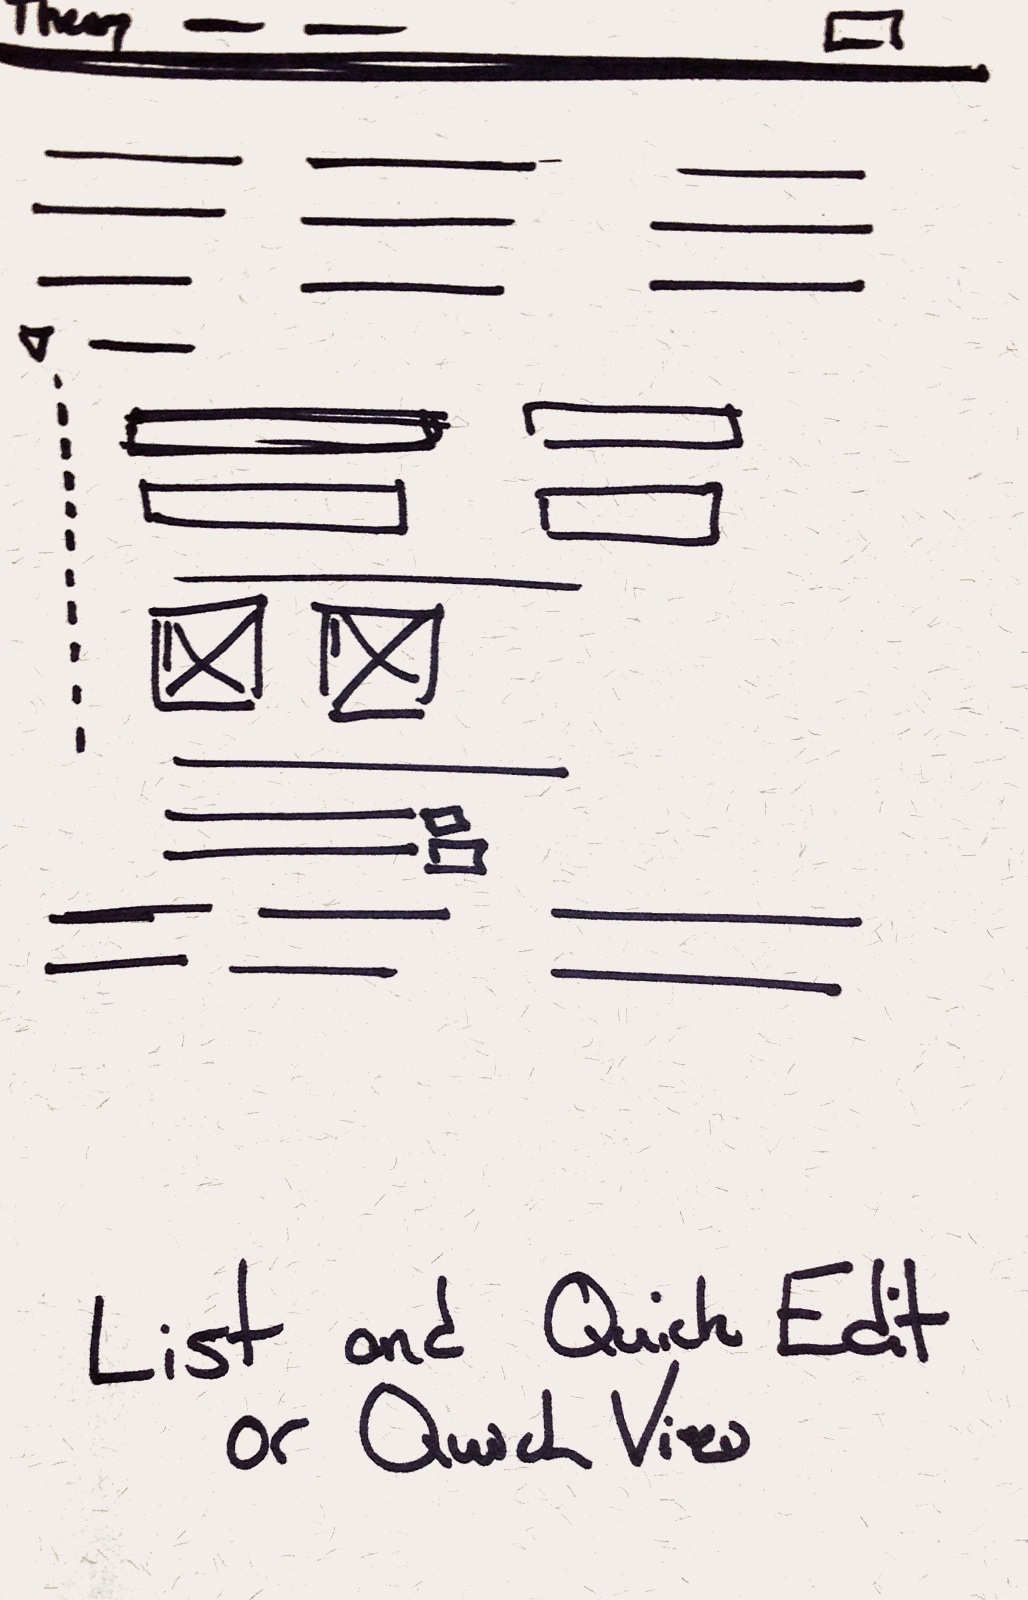 Theory
List and Quick Edit
or Quick View